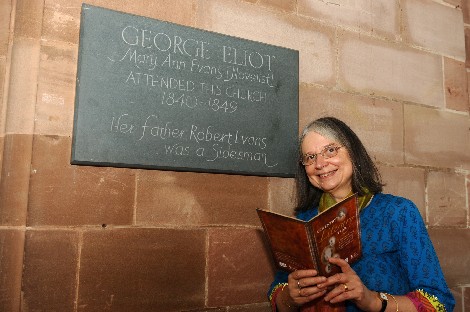 GEORGE ELIOT
Mary Ann Evans (Novelist)
ATTENDED THIS CHURCH
1840 - 1849
Her father Robert Evans
was a Sidesman